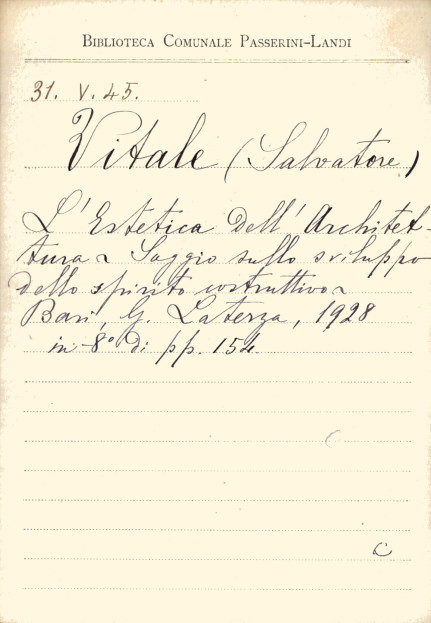 BIBLIOTECA COMUNALE PASSERINI-LANDI
31. V. 45.
Vitale (Salvatore)
L'Estetica dell'Architet-
tura ~ Saggio sullo sviluppo
dello spirito costruttivo ~
Bari, G. Laterza, 1928
in-8° di pp. 154.